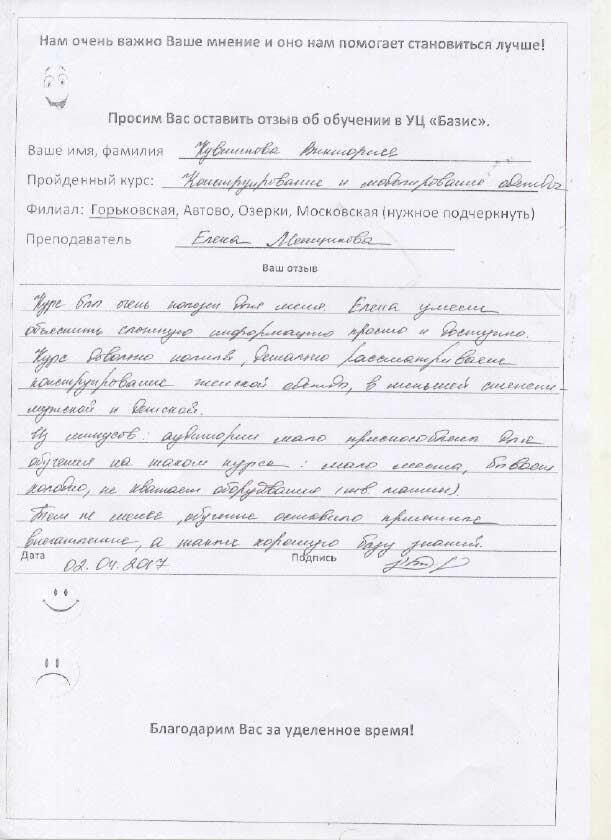 Нам очень важно Ваше мнение и оно нам помогает становиться лучше!
Просим Вас оставить отзыв об обучении в УЦ «Базис».
Ваше имя, фамилия Кувшинова Виктория
Пройденный курс: Конструирование и моделирование одежды
Филиал: Горьковская, Автово, Озерки, Московская (нужное подчеркнуть)
Преподаватель Елена Менщикова
Ваш отзыв
Курс был очень полезен для меня. Елена умеет
объяснить сложную информацию просто и доступно.
Курс довольно полный, детально рассматриваем
конструирование женской одежды, в меньшей степени –
мужской и детской.
Из минусов: аудитория мало приспособлена для
обучения на таком курсе: мало места, бывает
холодно, не хватает оборудования (шв. машин).
Тем не менее, обучение оставило приятное
впечатление, а также хорошую базу знаний.
Дата 02.04.2017 Подпись
Благодарим Вас за уделенное время!